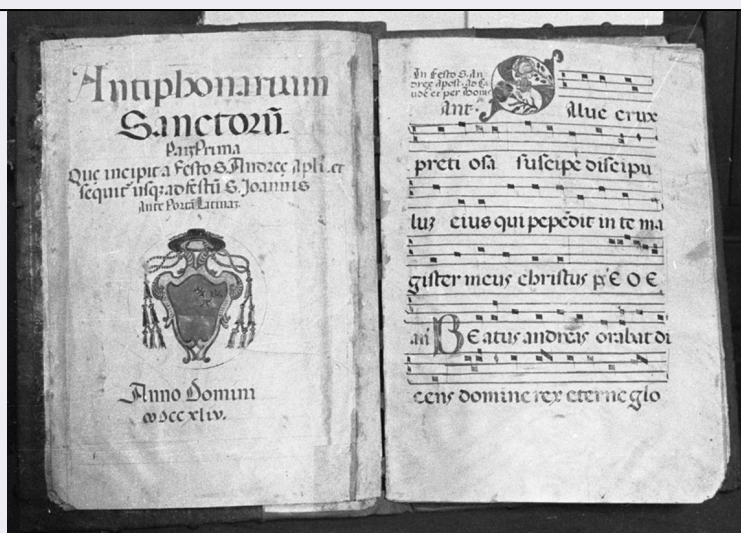 Antiphonarium
Sanctorū.
Pars Prima
Que incipit a Festo S. Andreę Apli. et
sequit' usq; ad festū S. Joannis
Ante Portā Latinaȝ.
Anno Domini
MDCCXLIV.
In Festo S. An
dreę Apost. ad
et per
Ant. Salve crux
preti osa suscipe discipu
luȝ eius qui pepēdit in te ma
gister meus christus p̄ E O E
añ BEatus andreas orabat di
cens domine rex eterne glo